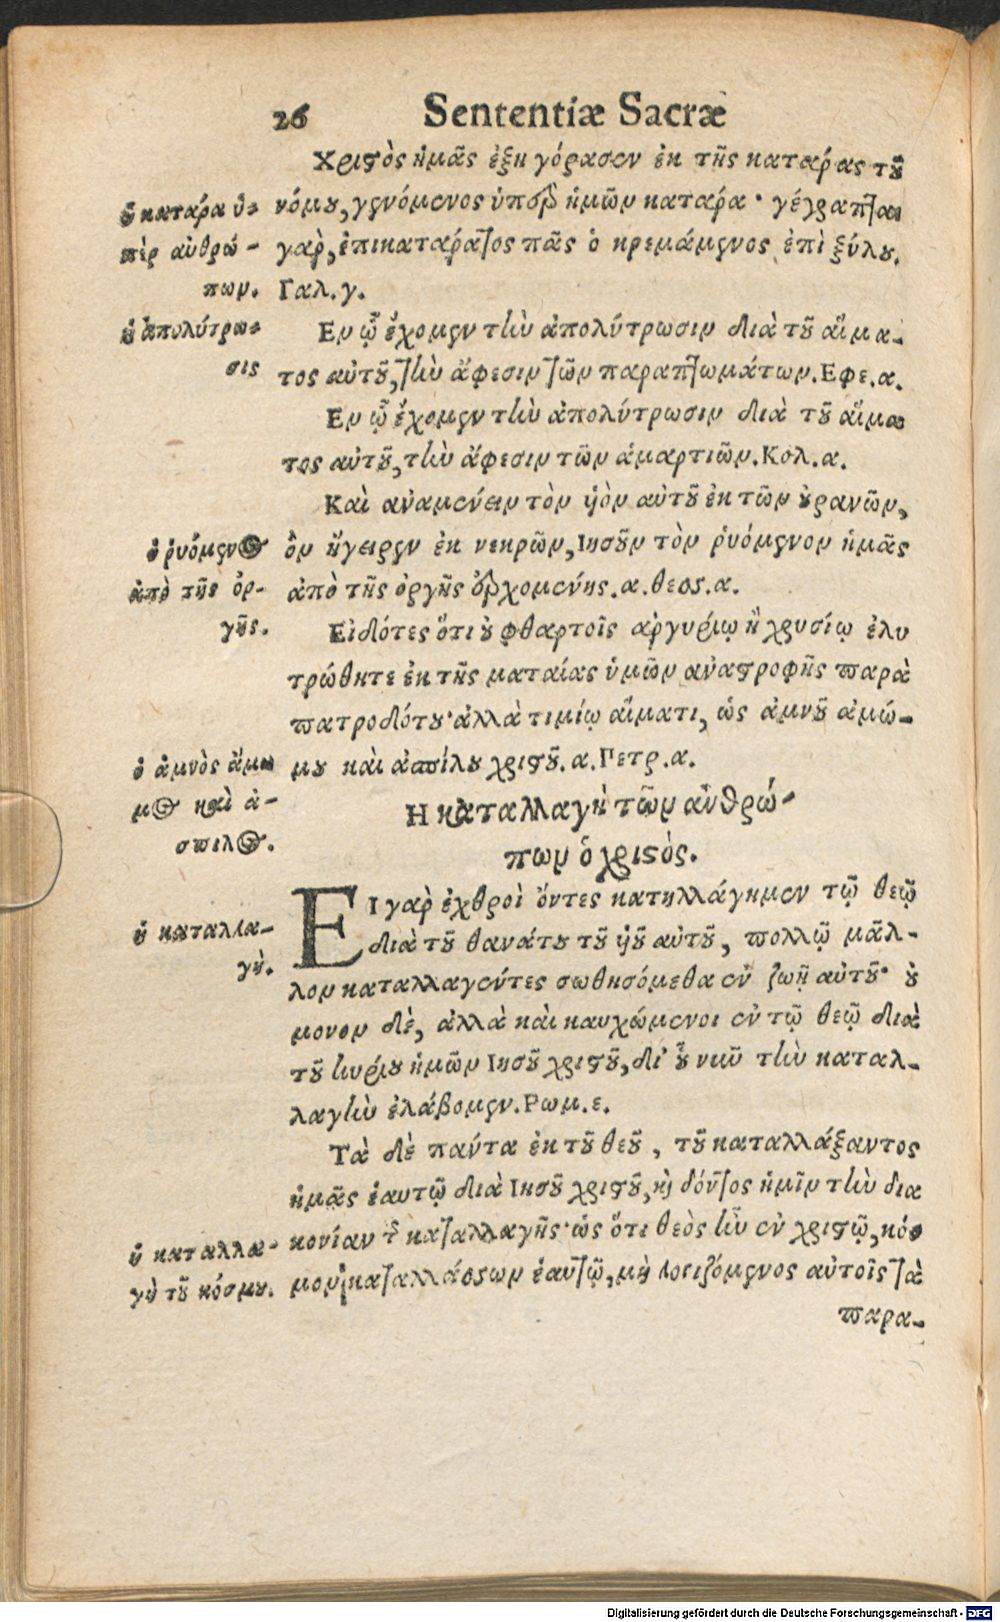 26 Sententiæ Sacræ
Χριστὸς ἡμᾶς ἐξηγόρασεν ἐκ τῆς κατάρας τοῦ
νόμου, γενόμενος ὑπὲρ ἡμῶν κατάρα· γέγραπται
γὰρ, ἐπικατάρατος πᾶς ὁ κρεμάμενος ἐπὶ ξύλου.
Γαλ. γ.
ἡ κατάρα ὑ-
πὲρ ἀνθρώ-
πων.
Εν ᾧ ἔχομεν τὴν ἀπολύτρωσιν διὰ τοῦ αἵμα-
τος αὐτοῦ, τὴν ἄφεσιν τῶν παραπτωμάτων. Εφε. α.
ἡ ἀπολύτρω-
σις
Εν ᾧ ἔχομεν τὴν ἀπολύτρωσιν διὰ τοῦ αἵμα
τος αὐτοῦ, τὴν ἄφεσιν τῶν ἁμαρτιῶν. Κολ. α.
Καὶ ἀναμένειν τὸν ὑὸν αὐτοῦ ἐκ τῶν οὐρανῶν,
ὃν ἤγειρεν ἐκ νεκρῶν, Ιησοῦν τὸν ῥυόμενον ἡμᾶς
ἀπὸ τῆς ὀργῆς ἐρχομένης. α. θεσ. α.
ὁ ῥυόμενος
ἀπὸ τῆς ὀρ-
γῆς.
Εἰδότες ὅτι οὐ φθαρτοῖς ἀργυρίῳ ἢ χρυσίῳ ἐλυ
τρώθητε ἐκ τῆς ματαίας ὑμῶν ἀναστροφῆς παρὰ
πατροδότου· ἀλλὰ τιμίῳ αἵματι, ὡς ἀμνοῦ ἀμώ-
μου καὶ ἀσπίλου χριστοῦ. α. Πετρ. α.
ὁ ἀμνὸς ἄμω
μος καὶ ἄ-
σπιλος.
Η καταλλαγὴ τῶν ἀνθρώ-
πων ὁ χριστὸς.
ΕΙ γὰρ ἐχθροὶ ὄντες κατηλλάγημεν τῷ θεῷ
διὰ τοῦ θανάτου τοῦ ὑοῦ αὐτοῦ, πολλῷ μᾶλ-
λον καταλλαγέντες σωθησόμεθα ἐν ζωῇ αὐτοῦ· οὐ
μονον δὲ, ἀλλὰ καὶ καυχώμενοι ἐν τῷ θεῷ διὰ
τοῦ κυρίου ἡμῶν Ιησοῦ χριστοῦ, δι' οὗ νῦν τὴν καταλ-
λαγὴν ἐλάβομεν. Ρωμ. ε.
ἡ καταλλα-
γή.
Τὰ δὲ πάντα ἐκ τοῦ θεοῦ, τοῦ καταλλάξαντος
ἡμᾶς ἑαυτῷ διὰ Ιησοῦ χριστοῦ, καὶ δόντος ἡμῖν τὴν δια
κονίαν τῆς καταλλαγῆς· ὡς ὅτι θεὸς ἦν ἐν χριστῷ, κόσ
μον καταλλάσσων ἑαυτῷ, μὴ λογιζόμενος αὐτοῖς τὰ
ἡ καταλλα-
γὴ τοῦ κόσμου.
παρα-
Digitalisierung gefördert durch die Deutsche Forschungsgemeinschaft - DFG